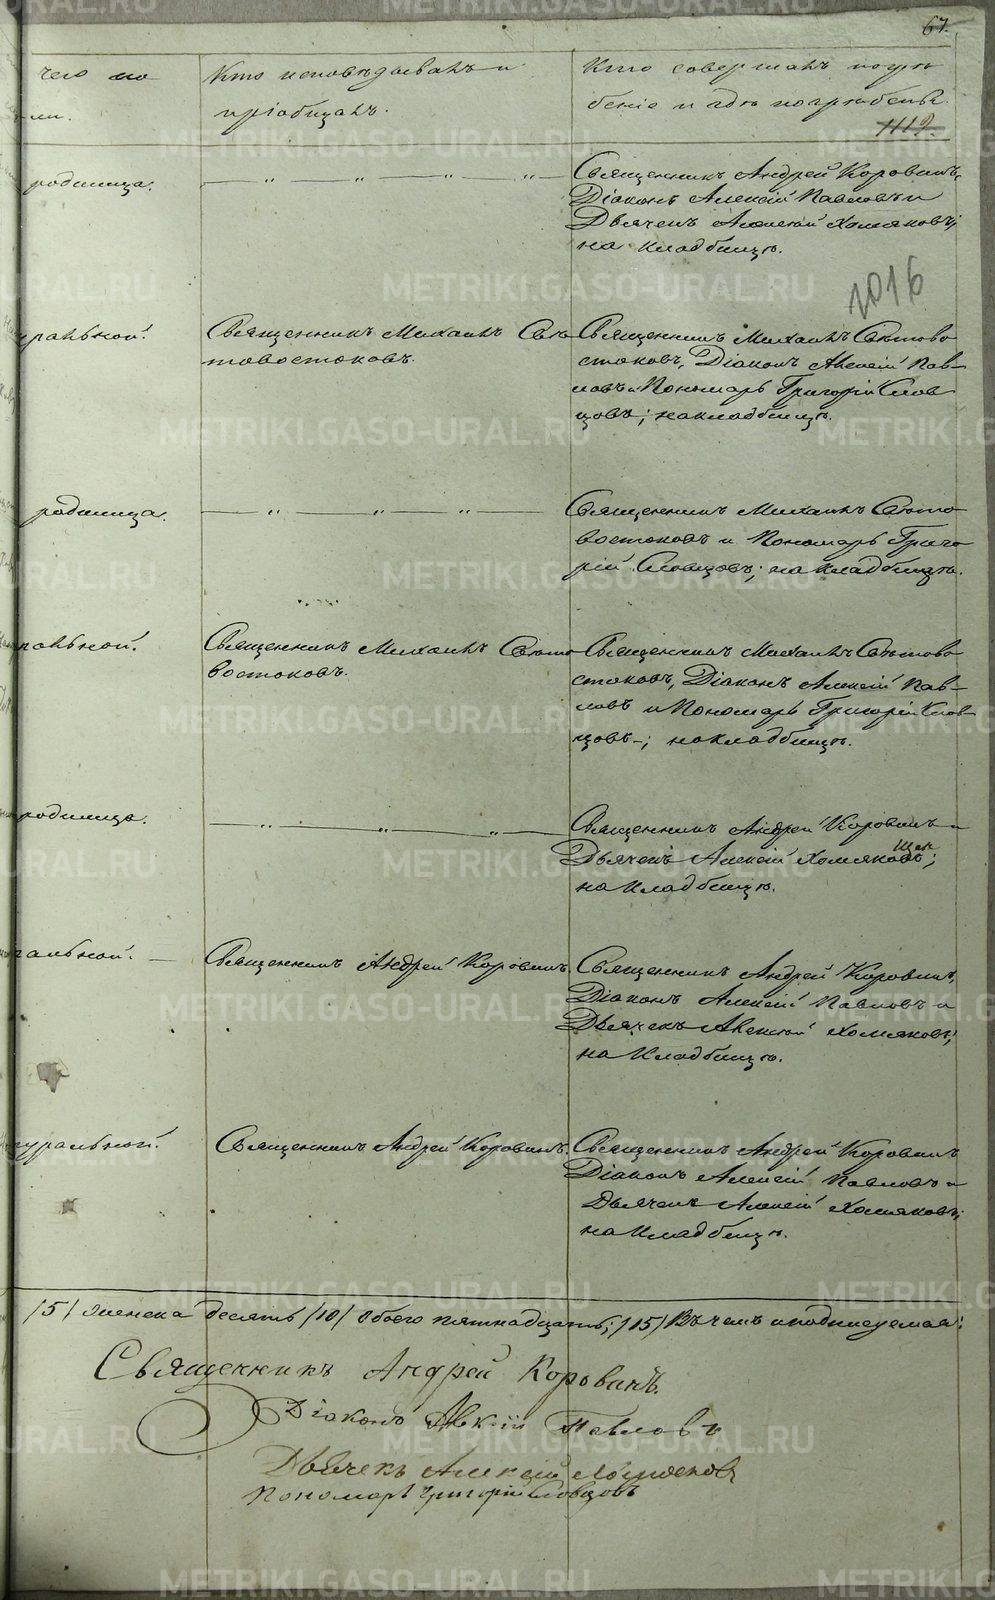 67.
чего по
ли.
Кто исповѣдывалъ и
пріобщалъ.
Кто совершалъ погре
беніе и гдѣ погребены.
1119.
родимца.
Священникъ Андрей Коровинъ,
Діаконъ Алексій Павловъ и
Дьячекъ Алексій Хомяковъ;
на кладбищѣ.
1016
уральной.
Священникъ Михаилъ Свѣ
товостоковъ.
Священникъ Михаилъ Свѣтово
стоковъ, Діаконъ Алексій Пав-
ловъ и Пономарь Григорій Слов
цовъ; на кладбищѣ.
родимца.
Священникъ Михаилъ Свѣто
востоковъ и Пономарь Григо
рій Словцовъ; на кладбищѣ.
ральной.
Священникъ Михаилъ Свѣто
востоковъ.
Священникъ Михаилъ Свѣтово
стоковъ, Діаконъ Алексій Пав-
ловъ и Пономарь Григорій Слов
цовъ; на кладбищѣ.
родимца.
Священникъ Андрей Коровинъ и
Дьячекъ Алексій Хомяковъ;
на кладбищѣ.
ральной.
Священникъ Андрей Коровинъ.
Священникъ Андрей Коровинъ,
Діаконъ Алексій Павловъ и
Дьячекъ Алексій Хомяковъ;
на кладбищѣ.
туральной.
Священникъ Андрей Коровинъ.
Священникъ Андрей Коровинъ
Діаконъ Алексій Павловъ и
Дьячекъ Алексій Хомяковъ;
на кладбищѣ.
/5/ женска десять /10/ Обоего пятнадцать; /15/ Въ чемъ и подписуемся:
Священникъ Андрей Коровинъ.
Діаконъ Алексій Павловъ
Дьячекъ Алексій Хомяковъ
Пономарь Григорій Словцовъ
METRIKI.GASO-URAL.RU